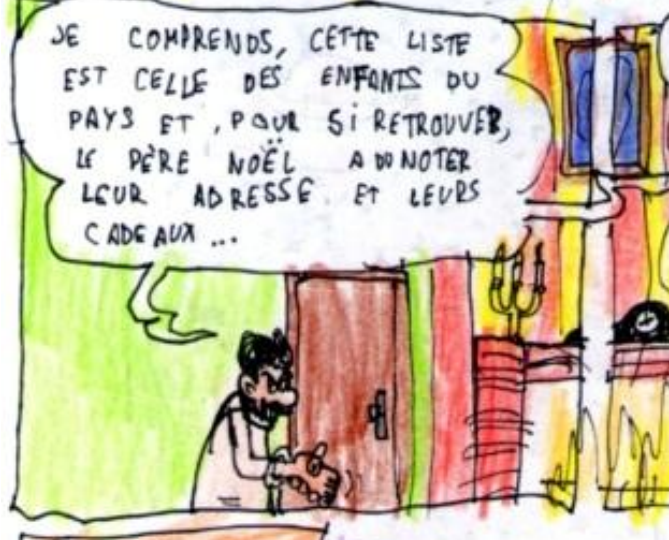 JE COMPRENDS, CETTE LISTE
EST CELLE DES ENFANTS DU
PAYS ET , POUR SI RETROUVER,
LE PÈRE NOËL A DÛ NOTER
LEUR ADRESSE ET LEURS
CADEAUX ...